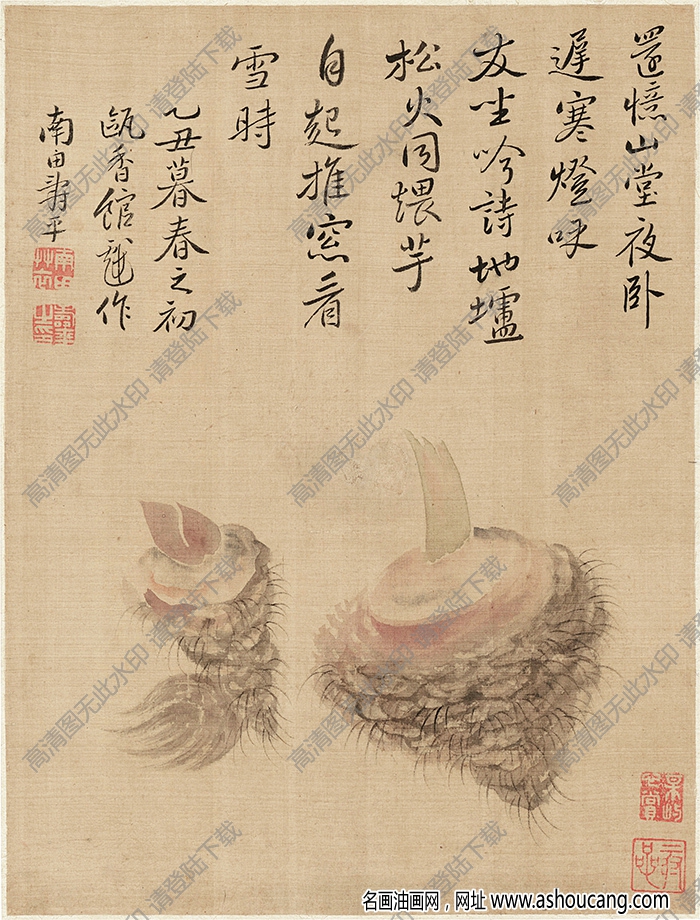 還憶山堂夜卧
遲寒燈呼
友坐吟詩地壚
松火同煨芋
自起推窓看
雪時
乙丑暮春之初
甌香館戲作
南田壽平
高清图无此水印 请登陆下载
名画油画网，网址 www.ashoucang.com